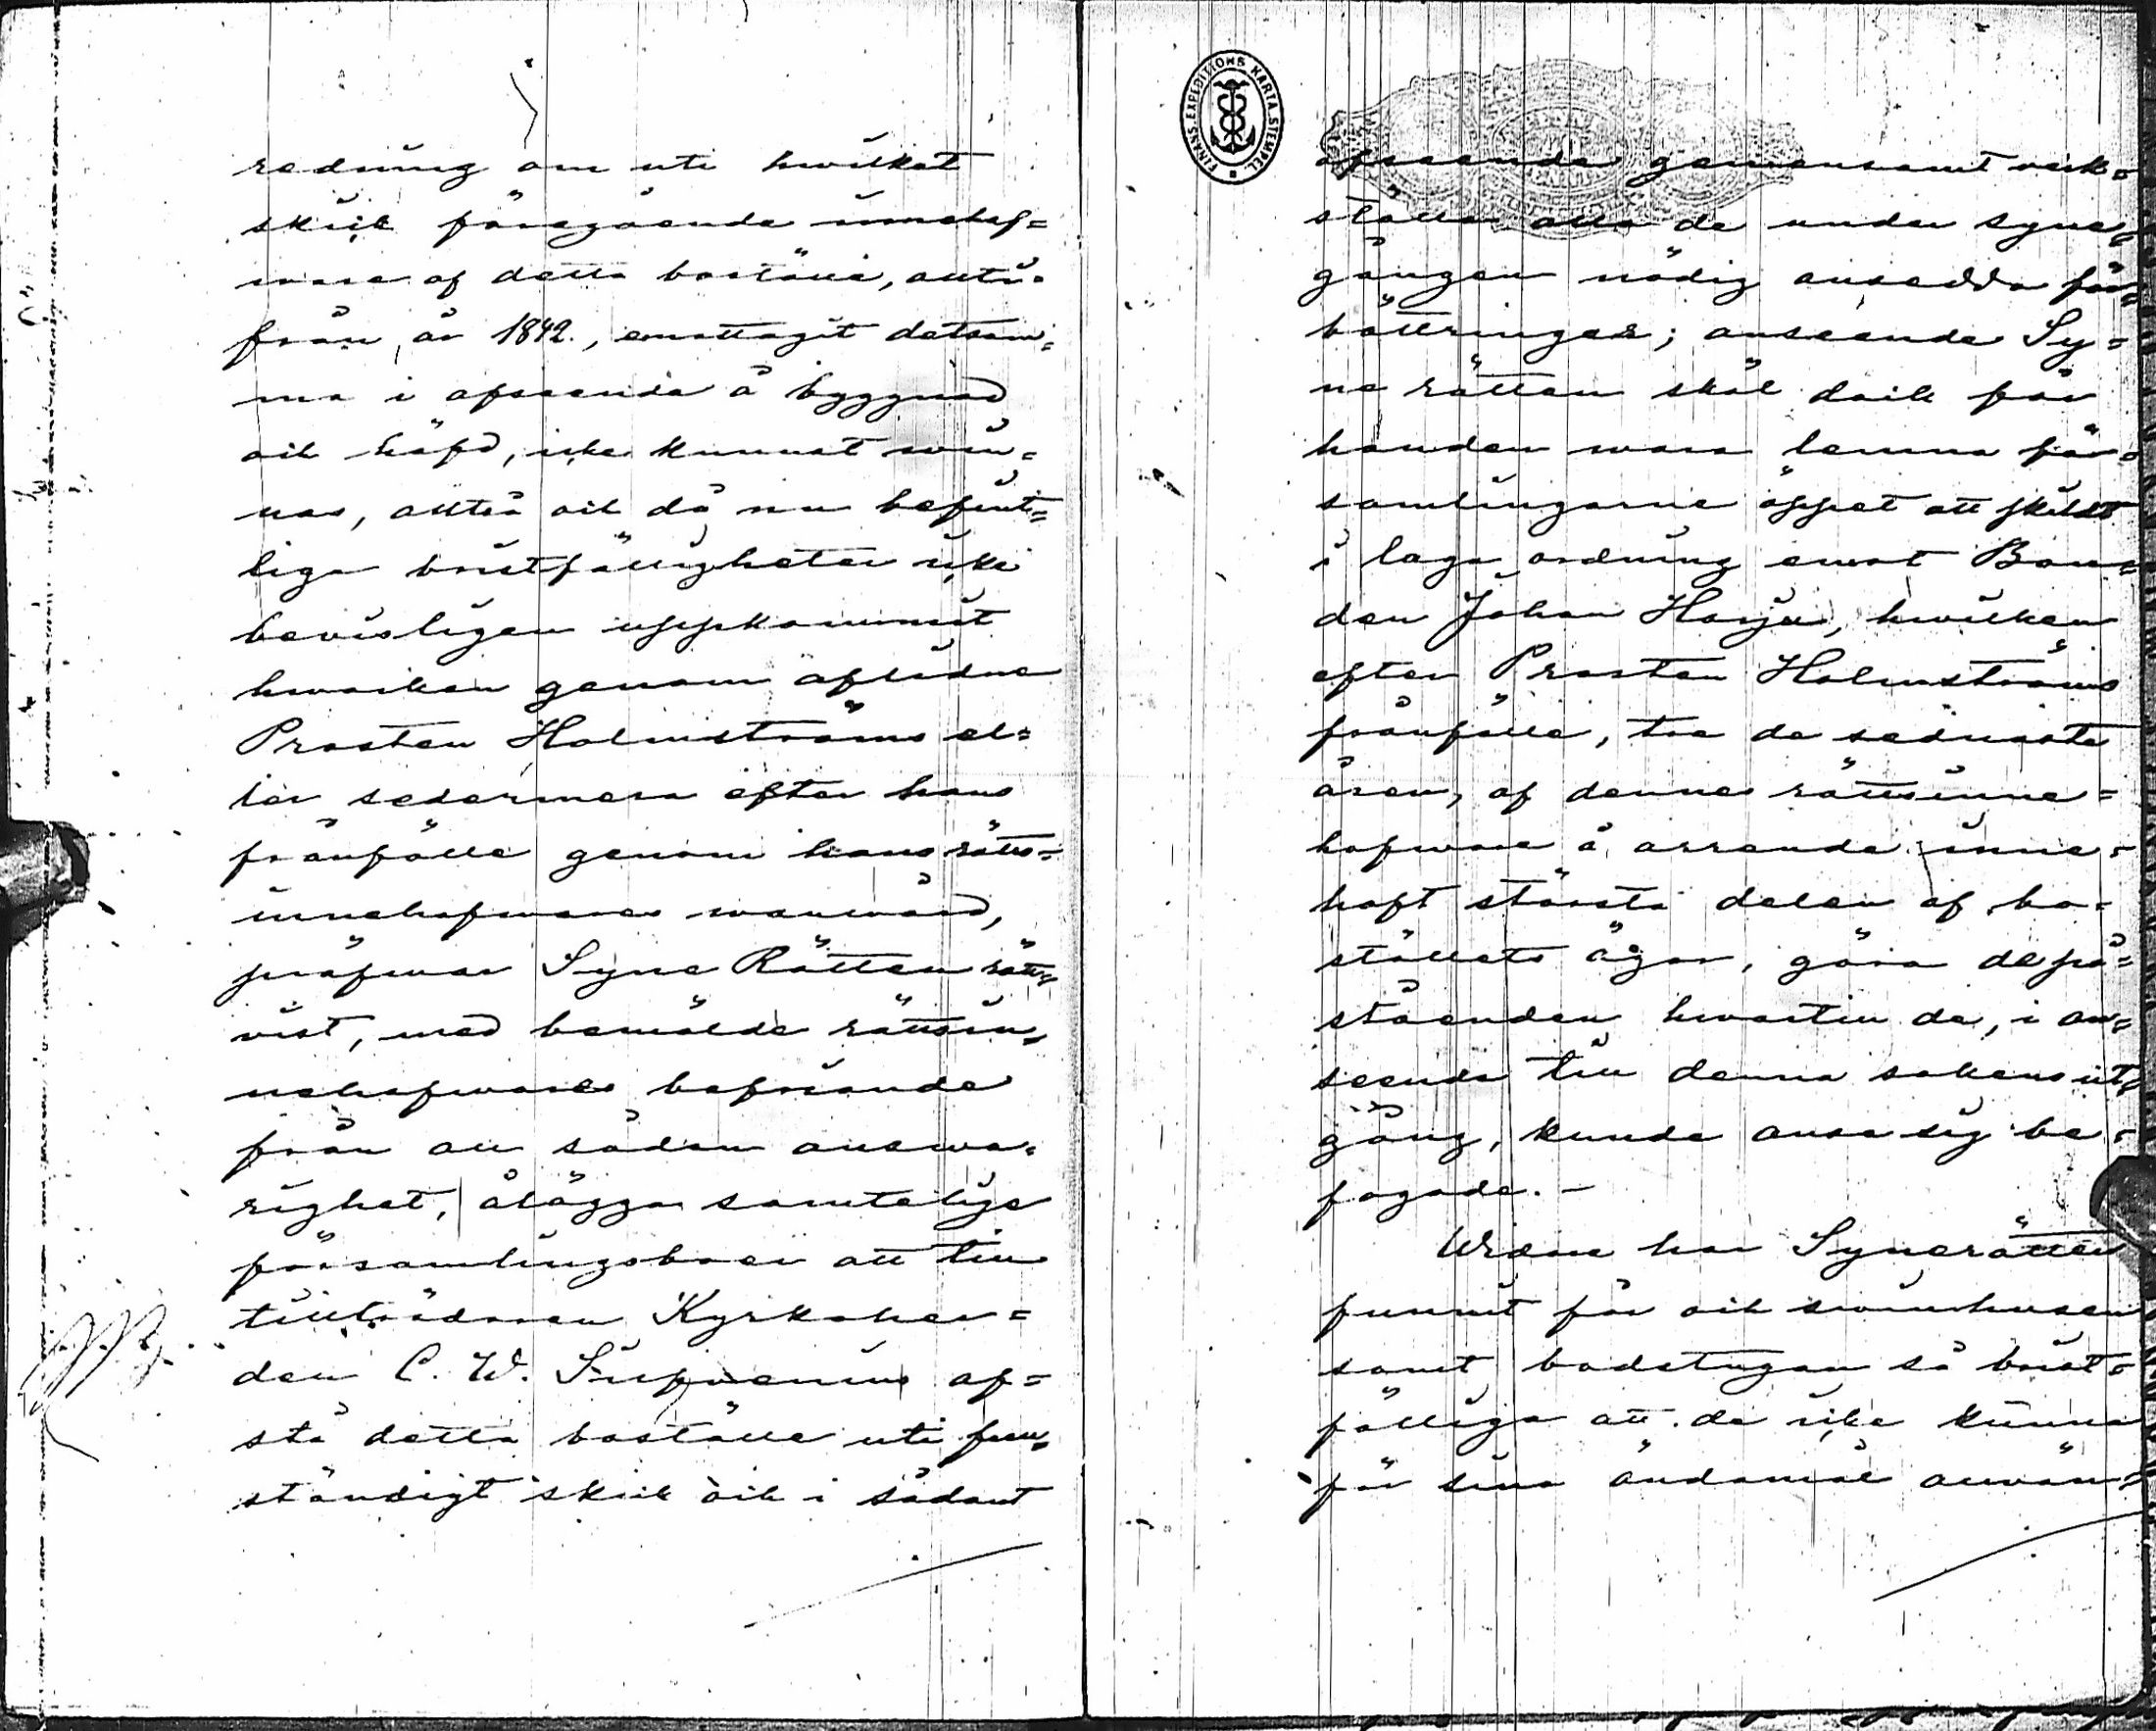 redning om uti hwilket
skick föregående innehaf=
ware af detta boställe, allti=
från år 1842., emottagit detsam=
ma i afseende å byggnad
och häfd, icke kunnat win=
nas, alltså och då nu befint=
liga bristfälligheter icke
bevisligen uppkommit
hwarken genom aflidne
Prosten Holmströms el=
ler sedermera efter hans
frånfälle genom hans rätts=
innehafwares wanwård,
pröfwar Syne Rätten rätt=
vist, med bemälde rättsin=
nehafwares befriande
från all sådan answa=
righet, ålägga samtelige
församlingsboer att till
tillträdaren Kyrkoher=
den C. W.
stå detta boställe uti full=
ständigt skick och i sådant
FINANS.EXPEDITIONS KARTA.STEMPEL.
afseende gemensamt verk=
ställa alla de under syne=
gången nödig ansedda för=
bättringar; anseende Sy=
ne rätten skäl dock för
handen wara lemna för=
samlingarne öppet att skildt
i laga ordning emot Bon=
den Johan Harju, hwilken
efter Prosten Holmströms
frånfälle, tre de sednaste
åren, af dennes rättsinne=
hafware å arrende inne=
haft största delen af bo=
ställets ägor, göra de på=
ståenden hwartill de, i an=
seende till denna sakens ut=
gång, kunde anse sig be=
fogade. -
Widare har Synerätten
funnit för och swinhusen
samt badstugan så brist=
fälliga att de icke kunna
för sina ändamål anwän=